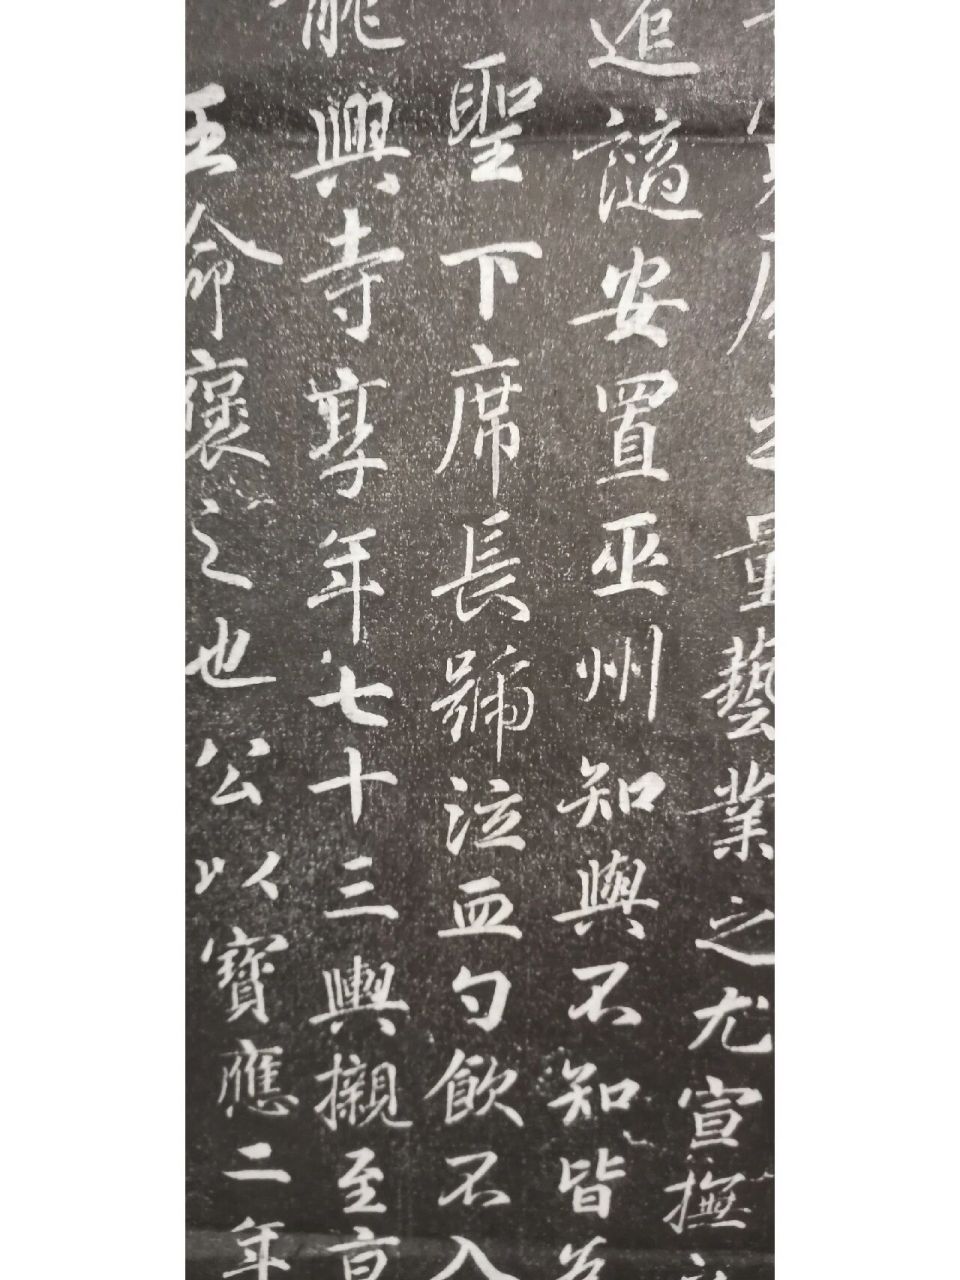 量藝業之尤宣撫
追讁安置巫州知與不知皆為
聖下席長號泣血勺飲不入
龍興寺享年七十三輿櫬至京
王命褒之也公以寶應二年